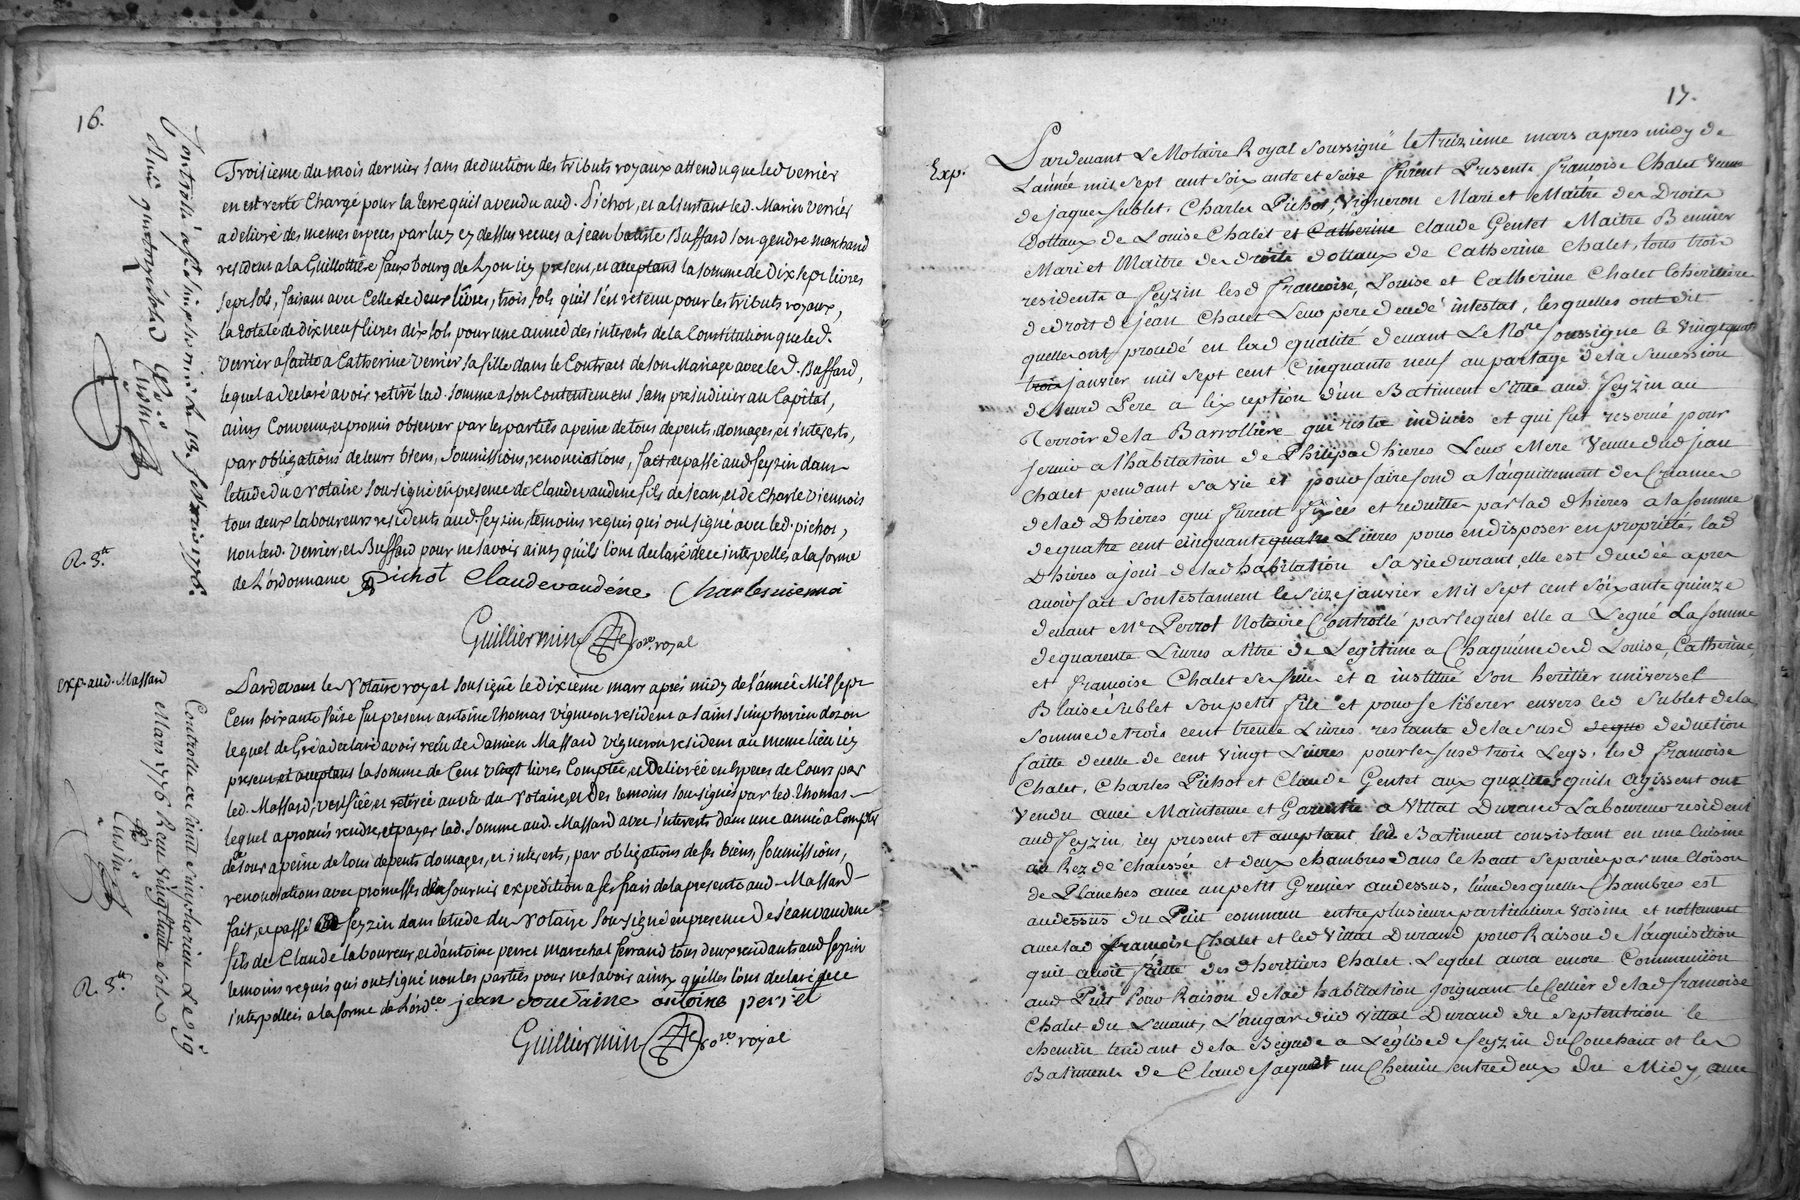 16.
Troisieme du mois dernier sans deduction des tributs royaux attendu que led verrier
en est resté Chargé pour la terre qu'il a vendu aud. Pichot, et a l'instant led. Marin verrier
a delivré des memes especes par luy cy dessus recues a jean batiste Buffard son gendre marchand
resident a la Guillottière fauxbourg de Lyon icy present, et aceptant la somme de Dix sept livres
sept sols, faisant avec celle de deux livres, trois sols qu'il s'est retenu pour les tributs royaux,
la totale de Dix neuf livres dix sols pour une année des interests de la Constitution que led.
Verrier a faitte a Catherine verrier sa fille dans le Contract de son Mariage avec led. Buffard,
lequel a declaré avoir retiré lad. somme a son Contentement sans prejudicier au Capital,
ainsy Convenu, et promis observer par les parties a peine de tous depents, domages, et interests,
par obligations de leurs biens, Soumissions, renonciations, fait et passé aud feyzin dans
l'etude du Notaire Sousigné en presence de Claude vaudene fils de jean, et de Charle viennois
tous deux laboureurs residents aud. feyzin, temoins requis qui ont signé avec led. pichot,
non led. verrier, et Buffard pour ne savoir ainsy qu'ils l'ont declaré de ce interpellés a la forme
de L'ordonnance Pichot Claude vaudéne Charles viennoi
Guilliermin no.re royal
R. 5.s
exp. aud. Massard
Pardevant le Notaire royal Sousigné le Dixième mars après midy de l'année Mil sept
Cent soixante seize fut present antoine thomas vigneron resident a saint simphorien dozon
lequel de Gré a declaré avoir recu de Damien Massard vigneron resident au meme lieu icy
present et aceptant la somme de Cent vingt livres Comptée, et Delivrée en Especes de Cours par
led. Massard, verifiée, et retirée au vu du Notaire, et des temoins sousignés par led. thomas
lequel a promis rendre, et payer lad. somme aud. Massard avec interests dans une année a Compter
de ce jour a peine de tous depents domages, et interests, par obligations de ses biens, soumissions,
renonciations avec promesses d'en fournir expedition a ses frais de la presente aud. Massard
fait, et passé feyzin dans l'etude du Notaire Sousigné en presence de jean vaudene
fils de Claude laboureur, et d'antoine perret marechal ferrand tous deux residants aud feyzin
temoins requis qui ont signé non les parties pour ne savoir ainsy qu'elles l'ont declaré de ce
interpellées a la forme de L'ord.ce jean voudaine antoine perret
Guilliermin no.re royal
R. 5.s
17.
Exp.
Pardevant Le Notaire Royal Soussigné le treizieme mars apres midy de
L'année mil sept cent soixante et seize furent Presents françoise Chalet veuve
de jaques Sublet, Charles Pichot, Vigneron Mari et Maitre des Droits
Dottaux de Louise Chalet et Catherine Claude Gentet Maitre Bennier
Mari et Maitre des droits dottaux de Catherine Chalet, tous trois
residents a feyzin lesd françoise, Louise et Catherine Chalet Coheritiere
de droit de jean Chalet Leur pere decedé intestat, lesquelles ont dit
quelles ont procedé en lad qualité devant Le No.re soussigné le Vingt quatre
trois janvier mil sept cent Cinquante neuf au partage de la succession
de leurd Pere a l'exception d'un Batiment situé aud feyzin au
Terroir de la Barrolliere qui resta indivis et qui fut reservé pour
servir a l'habitation de Philipa dhieres Leur Mere Veuve dud jean
Chalet pendant sa vie et pour faire fond a l'aquittement des Creances
de lad Dhieres qui furent fixées et reduittes par lad dhieres a la somme
de quatre cent cinquante quatre Livres pour en disposer en propriété, lad
Dhières a joui de lad habitation sa vie durant, elle est decedée apres
avoir fait son testament le seize janvier Mil sept cent soixante quinze
devant Me Perrot Notaire Controllé par lequel elle a Legué La somme
de quarente Livres a titre de Legitime a Chaquune desd Louise, Catherine,
et françoise Chalet ses filles et a institué son heritier universel
Blaise Sublet son petit fils et pour se liberer envers led Sublet de la
Somme de trois cent trente Livres restante de la susd deduction
faitte de celle de cent vingt Livres pour les susd trois Legs, lesd françoise
Chalet, Charles Pichot et Claude Gentet aux qualités qu'ils agissent ont
Vendu avec Maintenue et Garentie a Vittal Durand Laboureur resident
aud feyzin, icy present et aceptant led. Batiment consistant en une Cuisine
au Rez de Chaussée et deux chambres dans le haut separées par une Cloison
de Planches avec un petit Grenier audessus, l'une desquelles Chambres est
audessus du Puit commun entre plusieurs particuliers voisins et nottament
avec lad françoise Chalet et led Vittal Durand pour Raison de l'acquisition
qu'il avoit faitte des dheritiers Chalet. Lequel aura encore Communion
aud Puit Pour Raison de lad habitation joignant le Cellier de lad françoise
Chalet du Levant, L'angar dud Vittal Durand du septentrion le
chemin tendant de la Begude a L'église de feyzin du Couchant et les
Batiments de Claude Jaquet un Chemin entre deux du Midy, avec